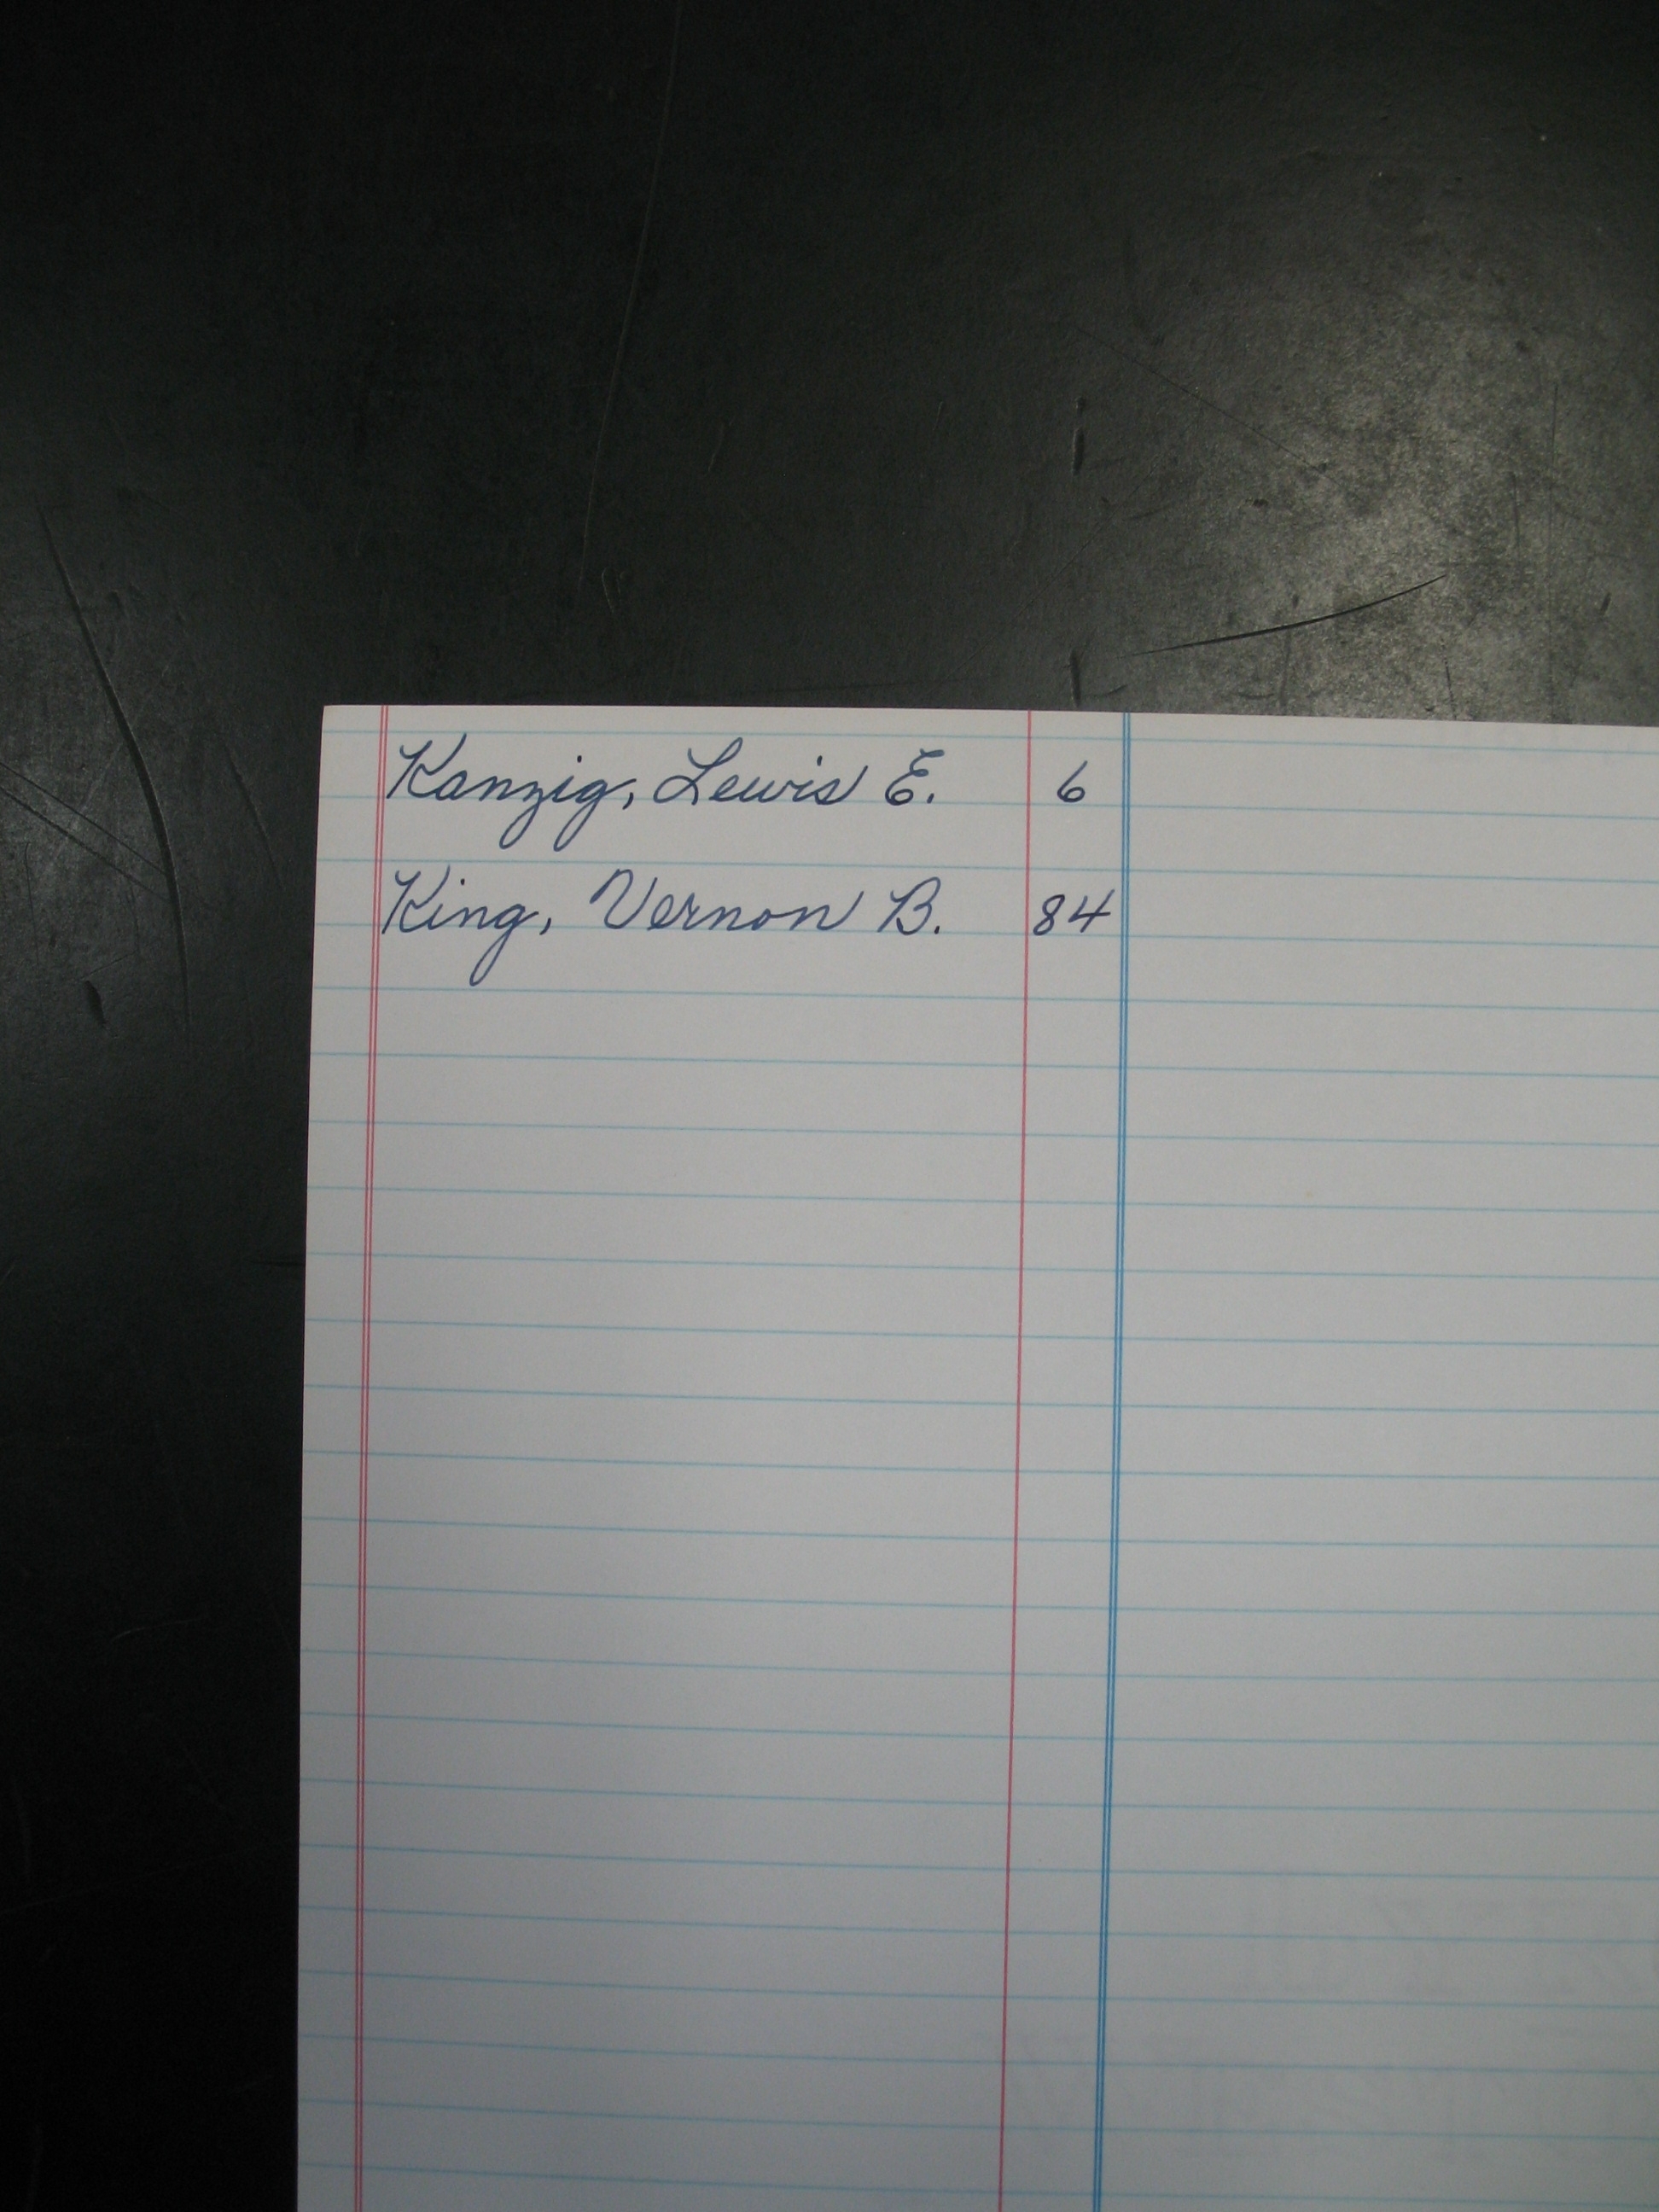 Kanzig, Lewis E. 6
King, Vernon B. 84